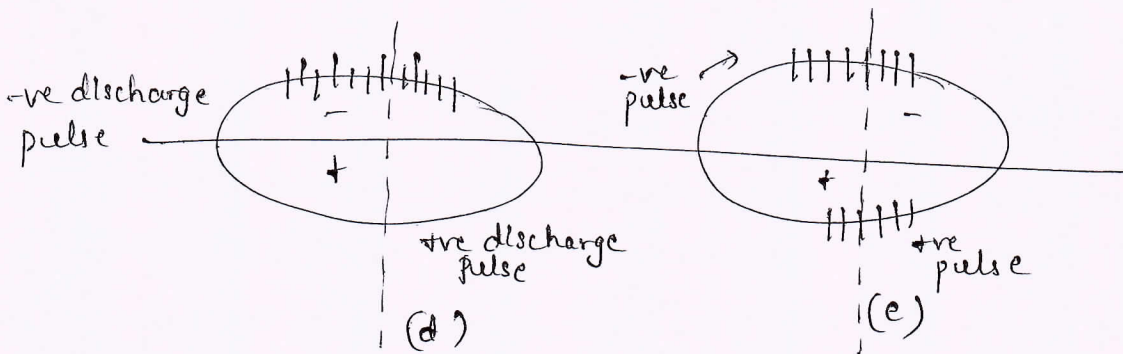 -ve discharge
pulse
-
+
+ve discharge
pulse
(d)
-ve
pulse
-
+
+ve
pulse
(e)